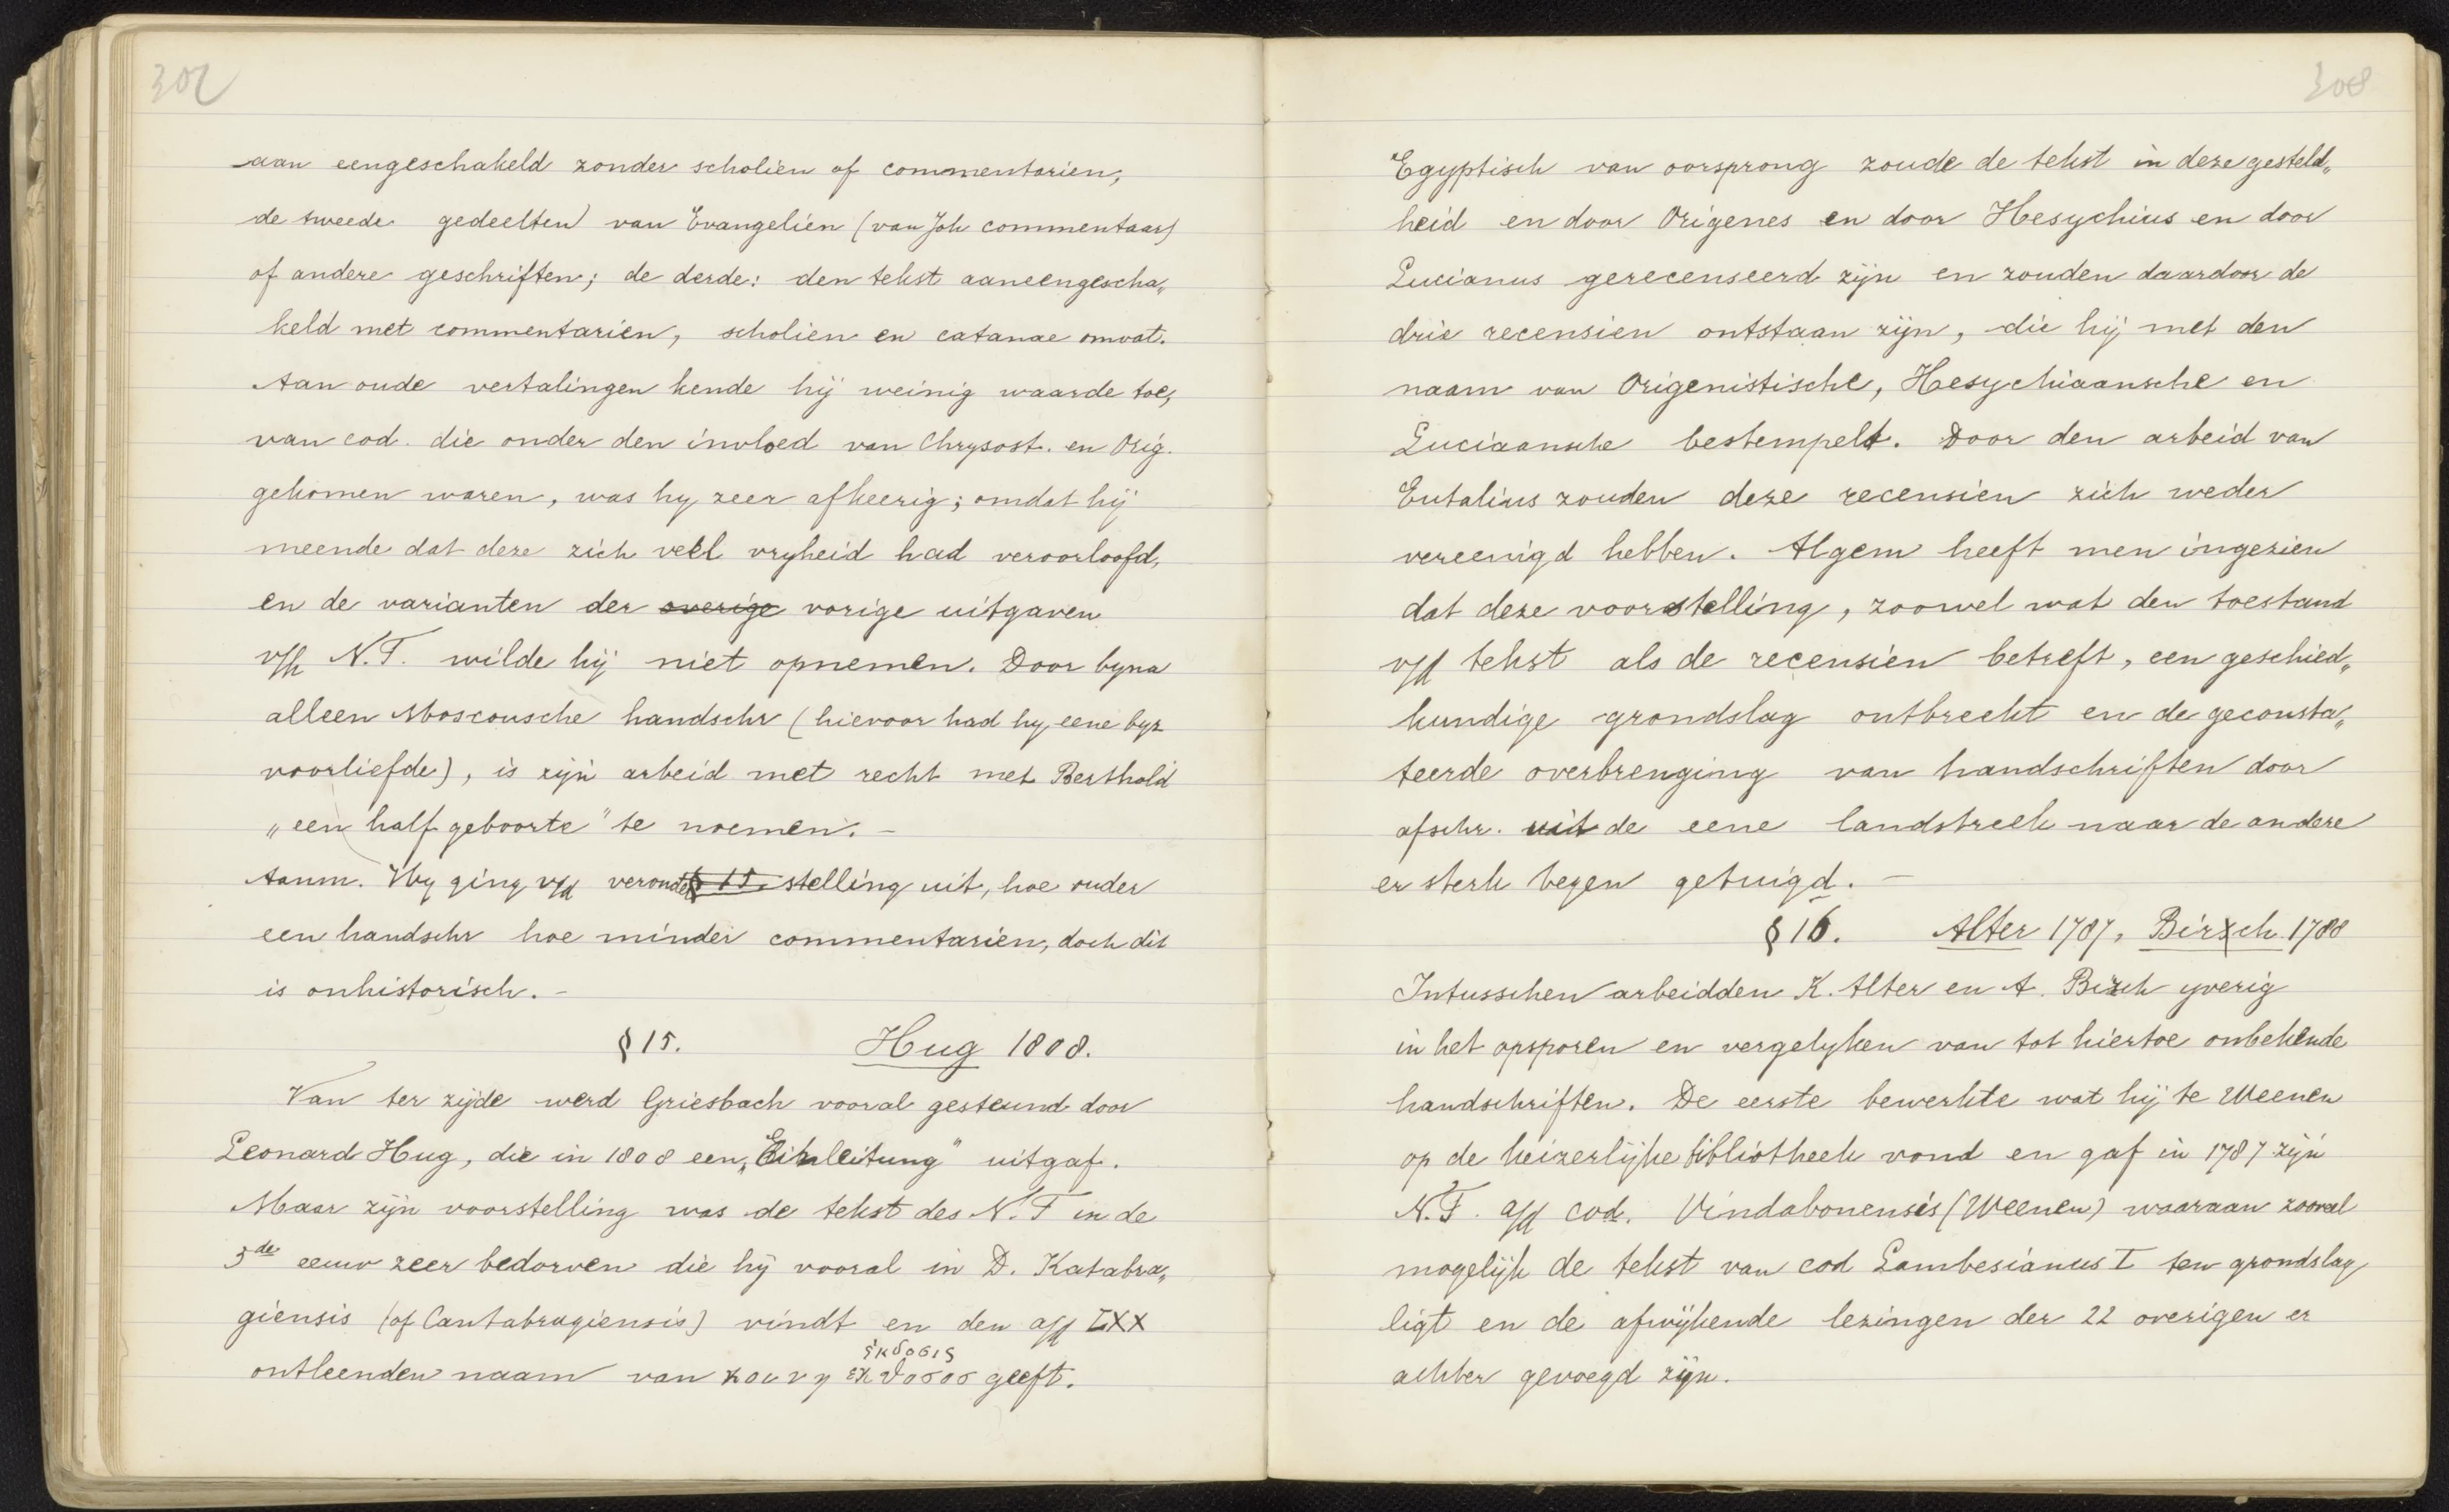 302
aan eengeschakeld zonder scholien of commentarien,
de tweede gedeelten van Evangelien (van Joh commentaar)
of andere geschriften; de derde: den tekst aaneengescha„
keld met commentarien, scholien en catanae omvat.
Aan oude vertalingen kende hij weinig waarde toe,
van cod. die onder den invloed van Chrysost. en Orig.
gekomen waren, was hy zeer afkeerig; omdat hij
meende dat deze zich veel vryheid had veroorloofd,
en de varianten der overige vorige uitgaven
v/h N.T. wilde hij niet opnemen. Door byna
alleen Moscousche handschr (hievoor had hy eene byz
voorliefde), is zijn arbeid met recht met Berthold
„een half geboorte" te noemen. –
Aanm. Hy ging v/d veronder § 15. stelling uit, hoe ouder
een handschr hoe minder commentarien, doch dit
is onhistorisch. –
§ 15. Hug 1808.
Van ter zijde werd Griesbach vooral gesteund door
Leonard Hug, die in 1808 een „Einleitung" uitgaf.
Maar zijn voorstelling was de tekst des N.T in de
3de eeuw zeer bedorven die hij vooral in D. Katabra„
giensis (of Cantabragiensis) vindt en den a/d LXX
ἐκδοσις
ontleenden naam van κοινη εκδοσοσ geeft.
308
Egyptisch van oorsprong zoude de tekst in deze gesteld„
heid en door Origenes en door Hesychius en door
Lucianus gerecenseerd zijn en zouden daardoor de
drie recensien ontstaan zijn, die hij met den
naam van Origenistische, Hesychiaansche en
Luciaansche bestempelt. Door den arbeid van
Eutalius zouden deze recensien zich weder
vereenigd hebben. Algem heeft men ingezien
dat deze voorstelling, zoowel wat den toestand
v/d tekst als de recensien betreft, een geschied„
kundige grondslag ontbreekt en de geconsta„
teerde overbrenging van handschriften door
afschr. uit de eene landstreek naar de andere
er sterk tegen getuigd. –
§ 16. Alter 1787, Birsch 1788
Intusschen arbeidden K. Alter en A. Birch yverig
in het opsporen en vergelyken van tot hiertoe onbekende
handschriften. De eerste bewerkte wat hij te Weenen
op de keizerlijke bibliotheek vond en gaf in 1787 zijn
N.T. a/d cod. Vindabonensis (Weenen) waaraan zooveel
mogelijk de tekst van cod Lambesianus I ten grondslag
ligt en de afwijkende lezingen der 22 overigen er
achter gevoegd zijn.